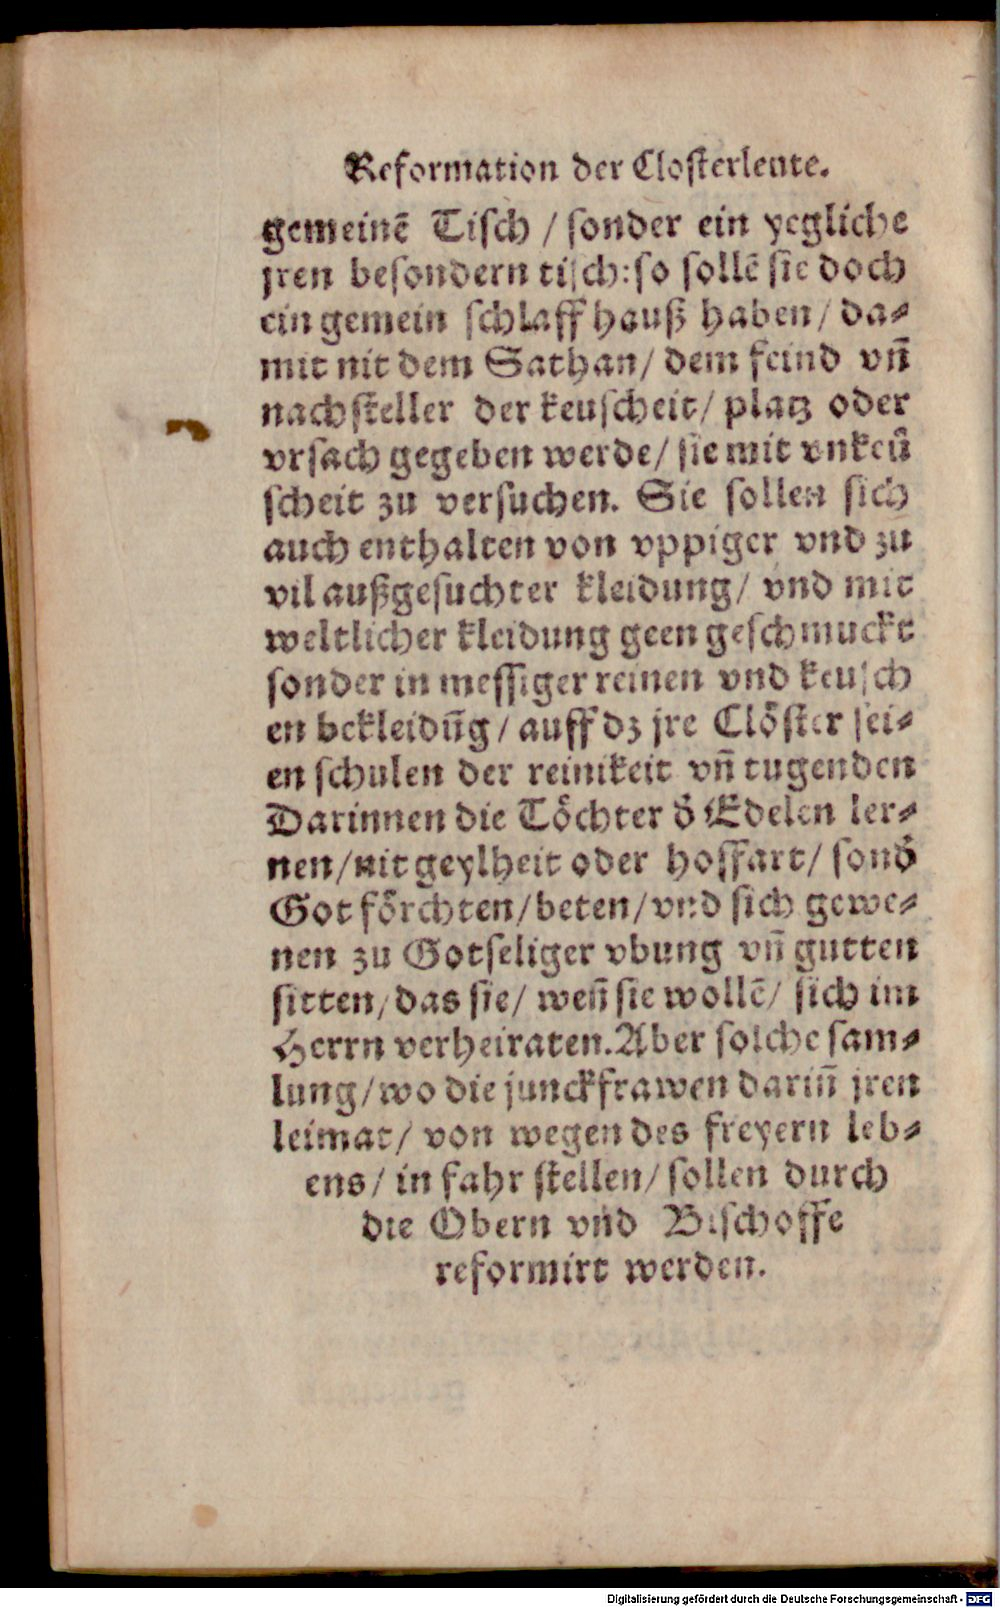 Reformation der Closterleute.
gemeinē Tisch / sonder ein yegliche
jren besondern tisch: so sollē sie doch
ein gemein schlaff hauß haben / da⸗
mit nit dem Sathan / dem feind vn̄
nachsteller der keuscheit / platz oder
vrsach gegeben werde / sie mit vnkeū
scheit zu versuchen. Sie sollen sich
auch enthalten von vppiger vnd zu
vil außgesuchter kleidung / vnd mit
weltlicher kleidung geen geschmuckt
sonder in messiger reinen vnd keusch
en bekleidūg / auff dz jre Clöster sei⸗
en schulen der reinikeit vn̄ tugenden
Darinnen die Töchter d̕ Edelen ler⸗
nen / nit geylheit oder hoffart / sond̕
Got förchten / beten / vnd sich gewe⸗
nen zu Gotseliger vbung vn̄ gutten
sitten / das sie / wen̄ sie wollē / sich im
Herrn verheiraten. Aber solche sam⸗
lung / wo die junckfrawen darin̄ jren
leimat / von wegen des freyern leb⸗
ens / in fahr stellen / sollen durch
die Obern vnd Bischoffe
reformirt werden.
Digitalisierung gefördert durch die Deutsche Forschungsgemeinschaft - DFG